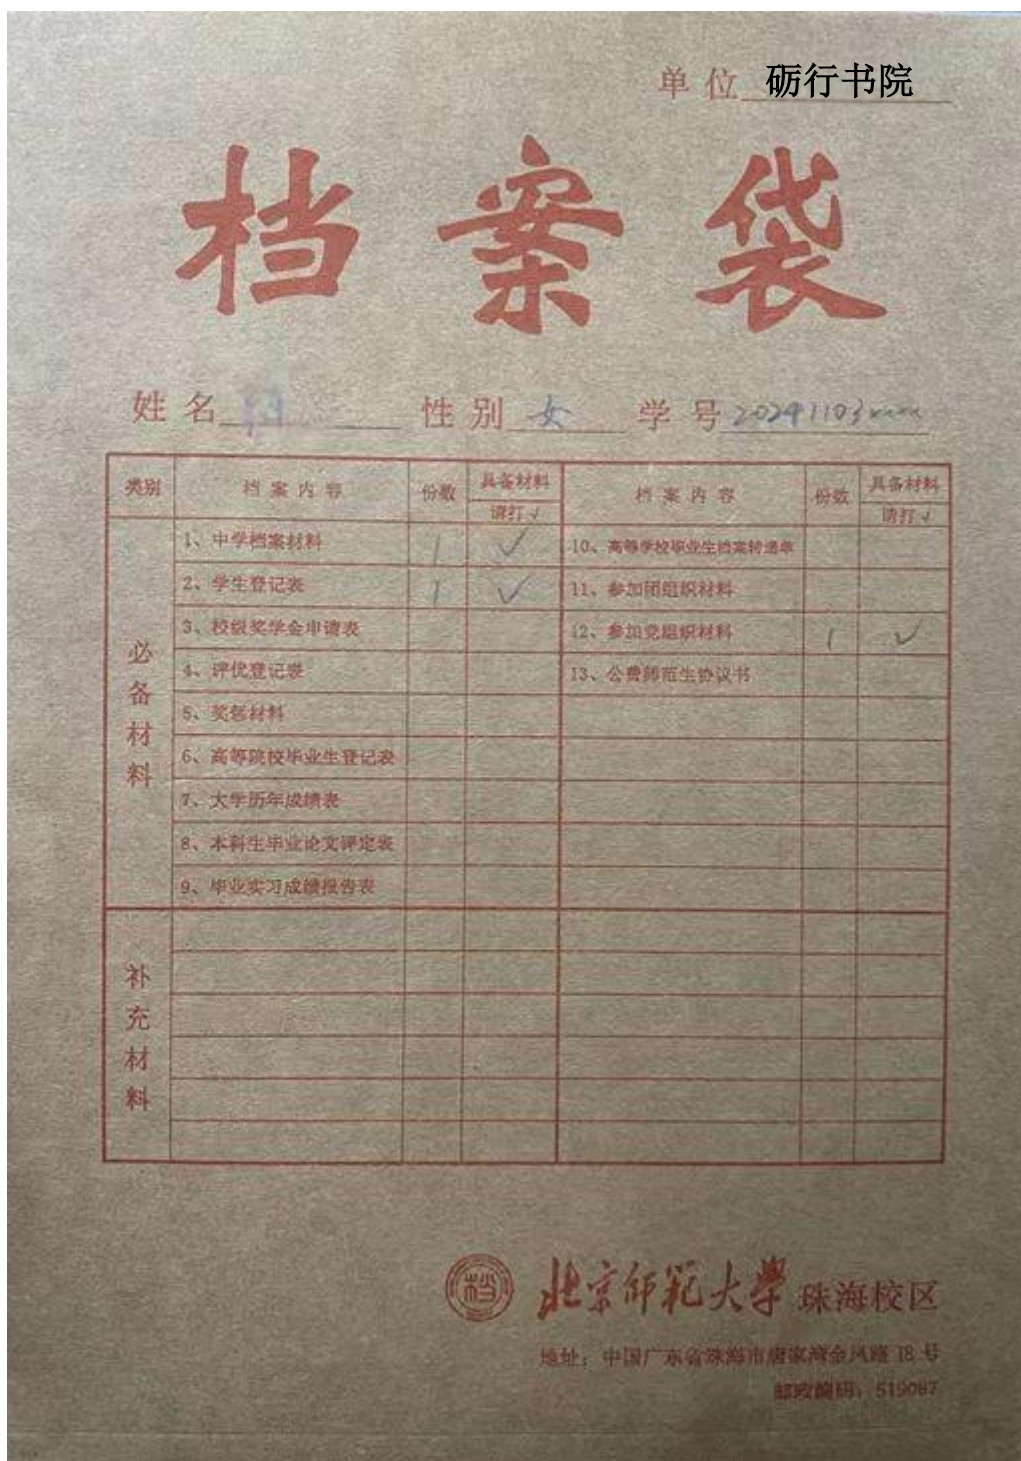 单位 砺行书院
档案袋
姓名 性别 女 学号 20241103xxxx
类别 档案内容 份数 具备材料 请打√ 档案内容 份数 具备材料 请打√
必备材料
1、中学档案材料 1 √ 10、高等学校毕业生档案转递单
2、学生登记表 1 √ 11、参加团组织材料
3、校级奖学金申请表 12、参加党组织材料 1 √
4、评优登记表 13、公费师范生协议书
5、奖惩材料
6、高等院校毕业生登记表
7、大学历年成绩表
8、本科生毕业论文评定表
9、毕业实习成绩报告表
补充材料
档 北京师范大学 珠海校区
地址：中国广东省珠海市唐家湾金凤路 18 号
邮政编码：519087